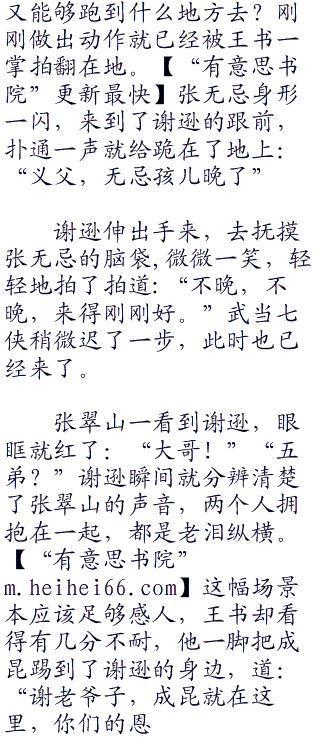 又能够跑到什么地方去？刚
刚做出动作就已经被王书一
掌拍翻在地。【“有意思书
院”更新最快】张无忌身形
一闪，来到了谢逊的跟前，
扑通一声就给跪在了地上：
“义父，无忌孩儿晚了”
谢逊伸出手来，去抚摸
张无忌的脑袋,微微一笑，轻
轻地拍了拍道:“不晚，不
晚，来得刚刚好。”武当七
侠稍微迟了一步，此时也已
经来了。
张翠山一看到谢逊，眼
眶就红了：“大哥！”“五
弟？”谢逊瞬间就分辨清楚
了张翠山的声音，两个人拥
抱在一起，都是老泪纵横。
【“有意思书院”
m.heihei66.com】这幅场景
本应该足够感人，王书却看
得有几分不耐，他一脚把成
昆踢到了谢逊的身边，道：
“谢老爷子，成昆就在这
里，你们的恩